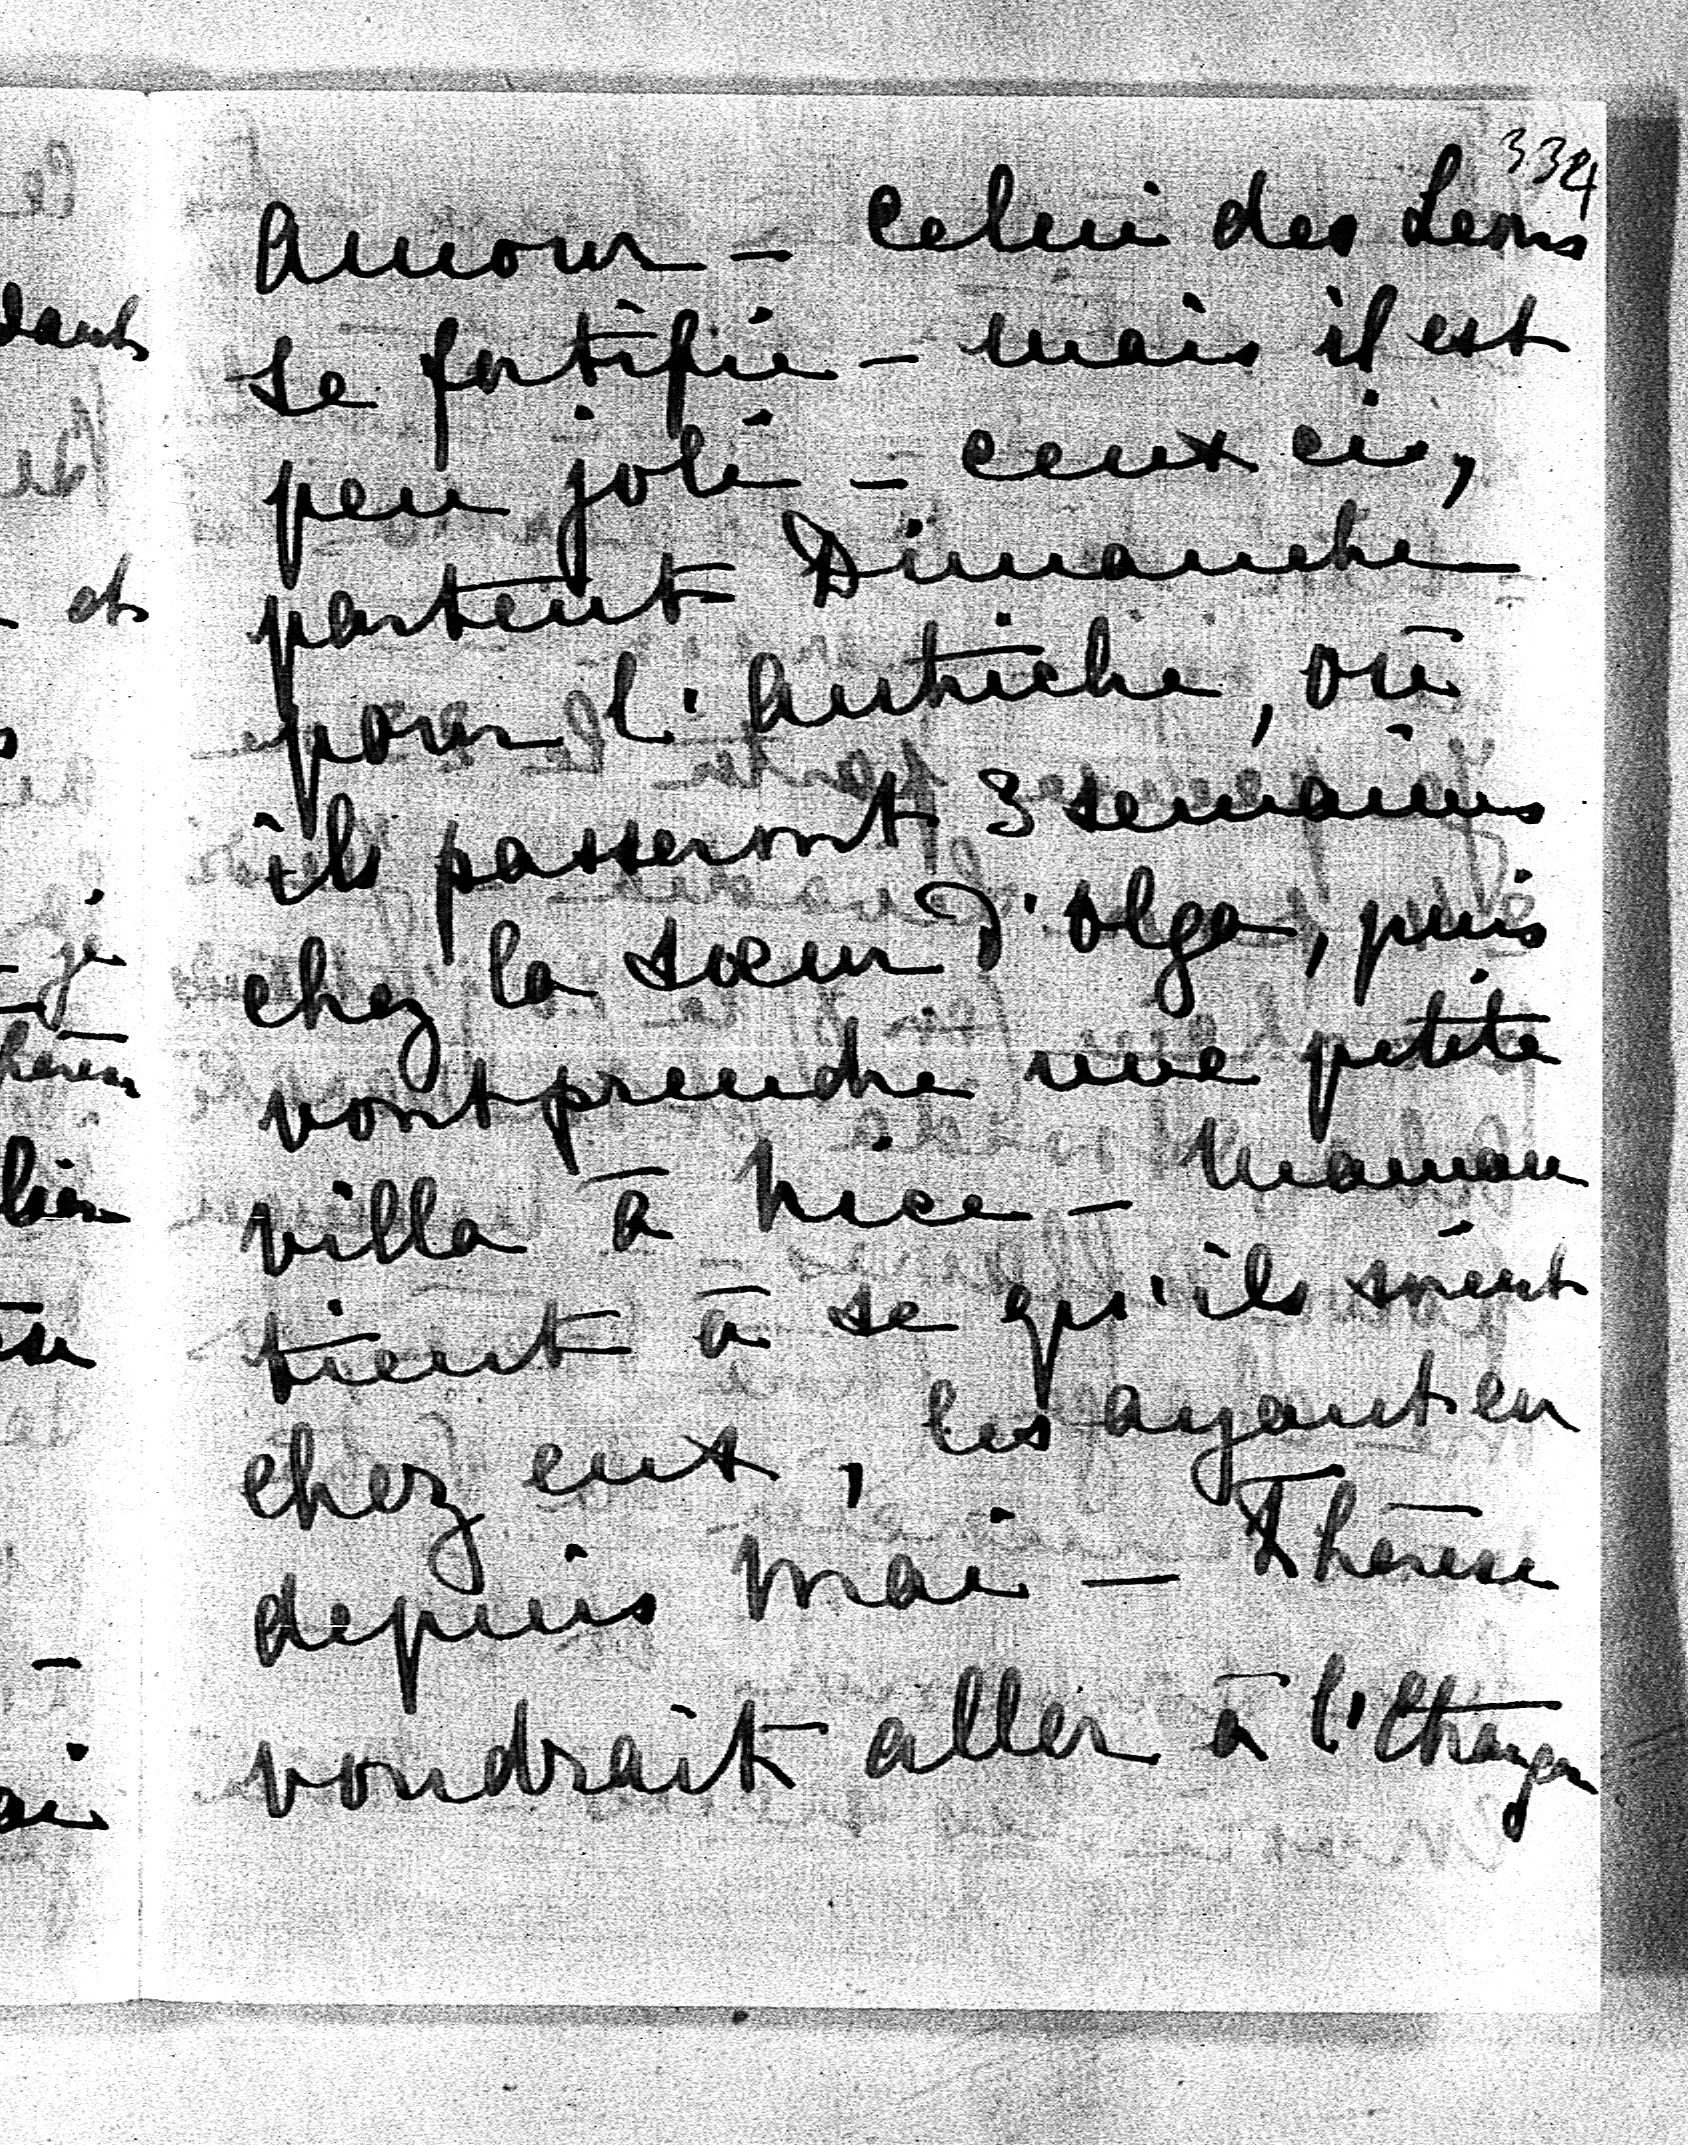 334
Amour - celui des Léons
se fortifie - mais il est
peu joli - ceux ci,
partent Dimanche
pour l'Autriche, où
ils passeront 3 semaines
chez la soeur d'Olga, puis
vont prendre une petite
villa à Nice - Maman
tient à se qu'ils soient
chez eux, les ayant eu
depuis Mai - Thérèse
voudrait aller à l'Etranger